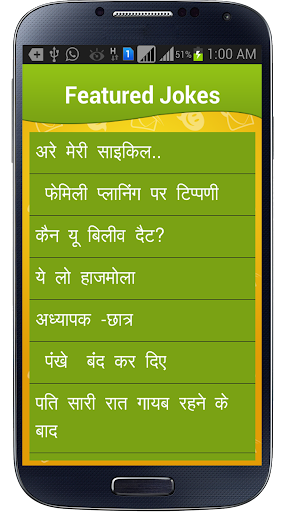 51% 1:00 AM
Featured Jokes
अरे मेरी साइकिल..
फेमिली प्लानिंग पर टिप्पणी
कैन यू बिलीव दैट?
ये लो हाजमोला
अध्यापक -छात्र
पंखे बंद कर दिए
पति सारी रात गायब रहने के
बाद